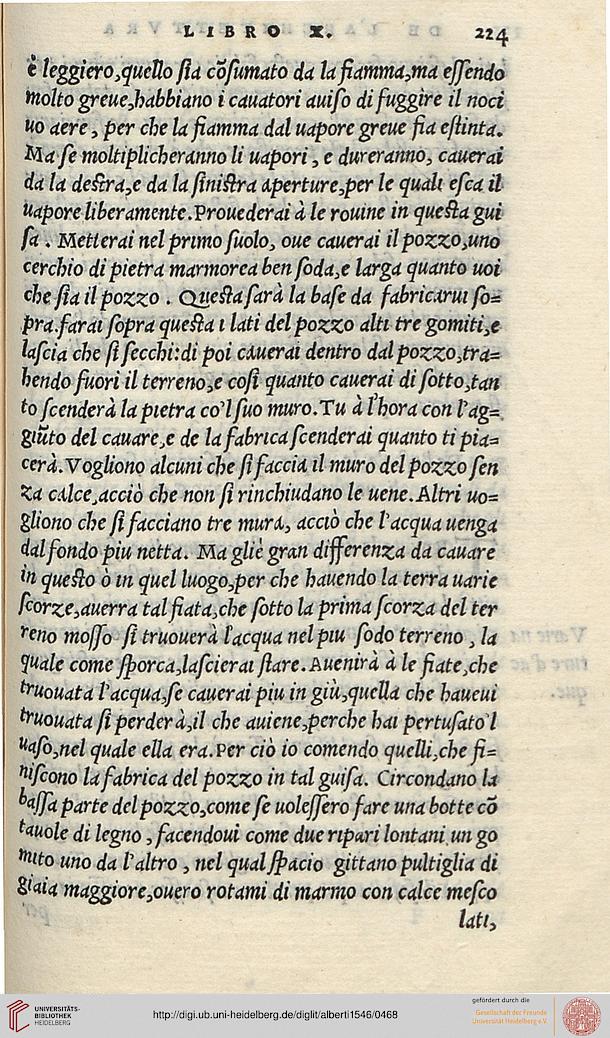 LIBRO X. 224
è leggiero,quello ſia cõſumato da la fiamma,ma eſſendo
molto greue,habbiano i cauatori auiſo di fuggire il noci
uo aere, per che la fiamma dal uapore greue ſia eſtinta.
Ma ſe moltiplicheranno li uapori, e dureranno, cauerai
da la deſtra,e da la ſiniſtra aperture,per le quali eſca il
uapore liberamente.Prouederai à le rouine in queſta gui
ſa. Metterai nel primo ſuolo, oue cauerai il pozzo,uno
cerchio di pietra marmorea ben ſoda,e larga quanto uoi
che ſia il pozzo. Queſta ſarà la baſe da fabricarui ſo=
pra.farai ſopra queſta i lati del pozzo alti tre gomiti,e
laſcia che ſi ſecchi:di poi cauerai dentro dal pozzo,tra=
hendo fuori il terreno,e coſi quanto cauerai di ſotto,tan
to ſcenderà la pietra co'l ſuo muro.Tu à l'hora con l'ag=
giũto del cauare,e de la fabrica ſcenderai quanto ti pia=
cerà.Vogliono alcuni che ſi faccia il muro del pozzo ſen
za calce,acciò che non ſi rinchiudano le uene.Altri uo=
gliono che ſi facciano tre mura, acciò che l'acqua uenga
dal fondo piu netta. Ma gliè gran differenza da cauare
in queſto ò in quel luogo,per che hauendo la terra uarie
ſcorze,auerra tal fiata,che ſotto la prima ſcorza del ter
reno moſſo ſi truouerà l'acqua nel piu ſodo terreno, la
quale come ſporca,laſcierai ſtare.Auenirà à le fiate,che
truouata l'acqua,ſe cauerai piu in giù,quella che haueui
truouata ſi perderà,il che auiene,perche hai pertuſato'l
uaſo,nel quale ella era.Per ciò io comendo quelli,che fi=
niſcono la fabrica del pozzo in tal guiſa. Circondano la
baſſa parte del pozzo,come ſe uoleſſero fare una botte cõ
tauole di legno, facendoui come due ripari lontani un go
mito uno da l'altro, nel qual ſpacio gittano pultiglia di
giaia maggiore,ouero rotami di marmo con calce meſco
lati,
UNIVERSITÄTS-
BIBLIOTHEK
HEIDELBERG
http://digi.ub.uni-heidelberg.de/diglit/alberti1546/0468
gefördert durch die
Gesellschaft der Freunde
Universität Heidelberg e.V.